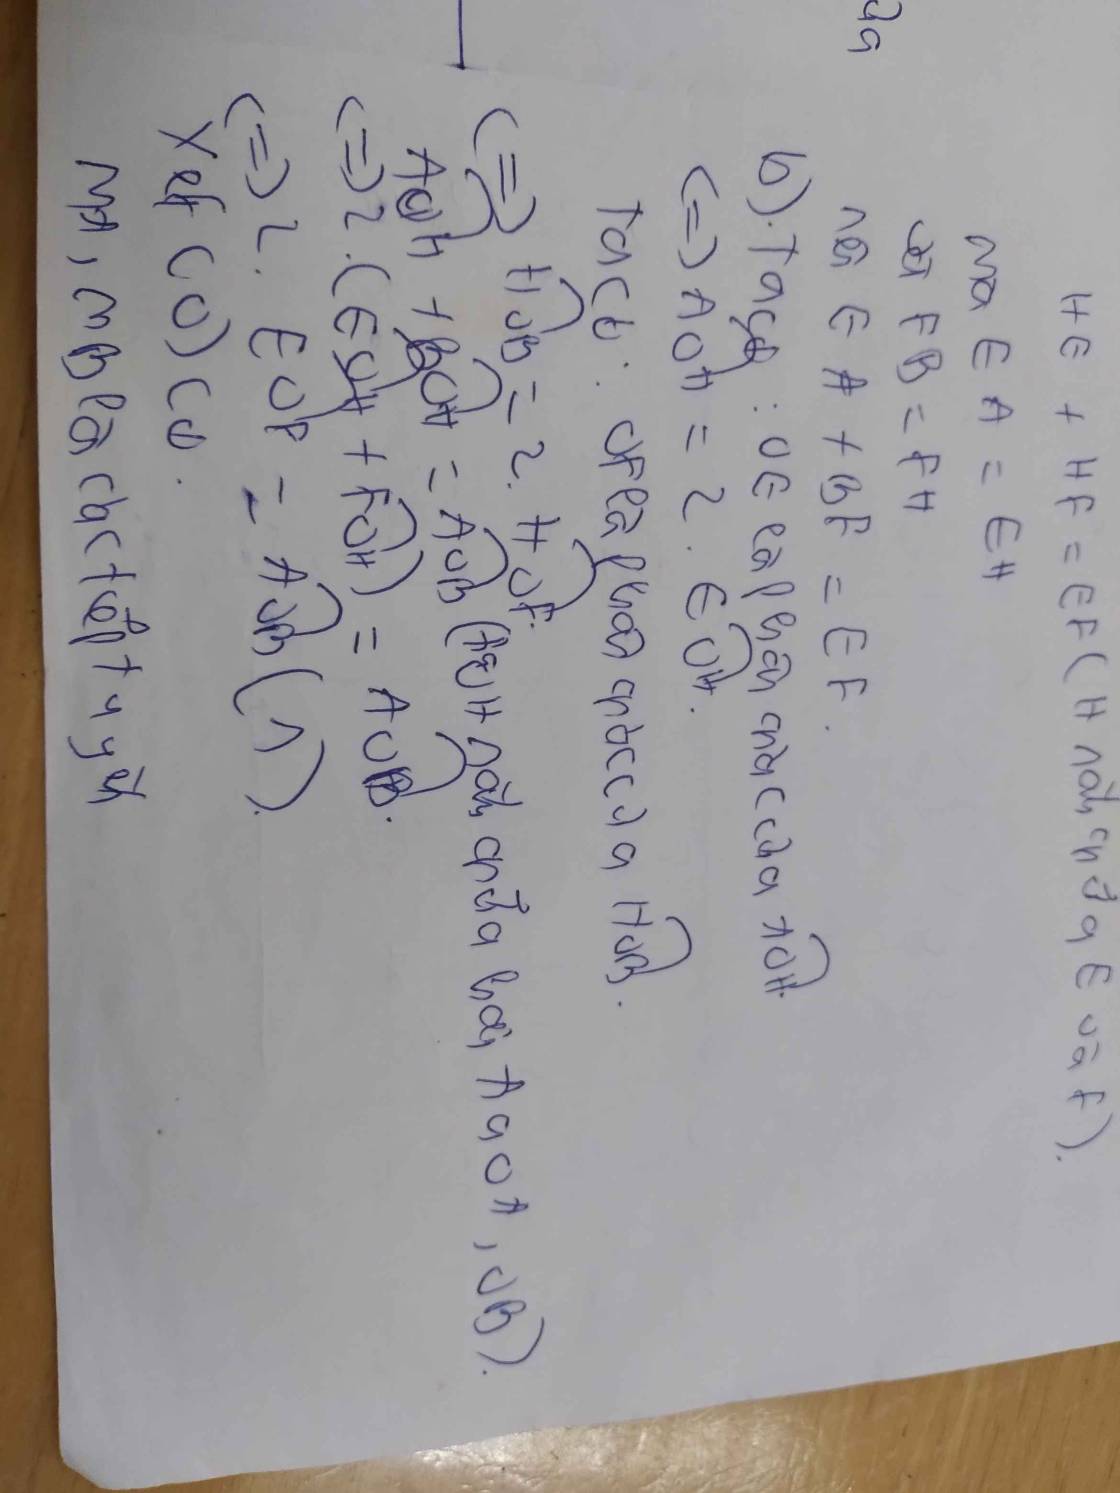 HE + HF = EF (H nằm giữa E và F).
mà EA = EH
và FB = FH
nên EA + BF = EF.
b) Ta có : OE là phân giác của AOH.
<=> AOH = 2. EOH.
Ta có : OF là phân giác của HOB.
<=> HOB = 2. HOF.
AOH + BOH = AOB (tia OH nằm giữa hai tia OA, OB).
<=> 2. (EOH + FOH) = AOB.
<=> 2. EOF = AOB (1).
Xét (O) có.
MA, MB là các tiếp tuyến